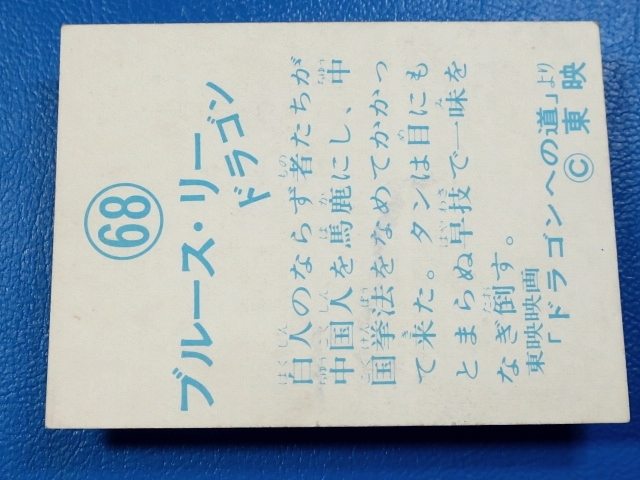 68
ブルース・リー
ドラゴン
白人のならず者たちが
中国人を馬鹿にし、中
国拳法をなめてかかっ
て来た。タンは目にも
とまらぬ早技で一味を
なぎ倒す。
東映映画
「ドラゴンへの道」より
©東映